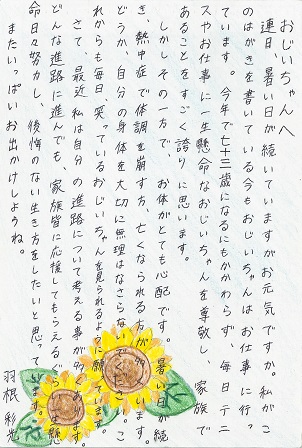 おじいちゃんへ
連日、暑い日が続いていますがお元気ですか。私がこ
のはがきを書いている今もおじいちゃんはお仕事に行っ
ています。今年で七十三歳になるにもかかわらず、毎日テニ
スやお仕事に一生懸命なおじいちゃんを尊敬し、家族で
あることをすごく誇りに思います。
しかしその一方で、お体がとても心配です。暑い日が続
き、熱中症で体調を崩す方、亡くなられる方がいます。
どうか、自分の身体を大切に無理はなさらないでください。こ
れからも毎日笑っているおじいちゃんを見られるように願ってます。
さて、最近私は自分の進路について考える事が多くあります。
どんな進路に進んでも、家族皆に応援してもらえるで懸
命日々努力し、後悔のない生き方をしたいと思っています。
またいっぱいお出かけしようね。
羽根 彩光